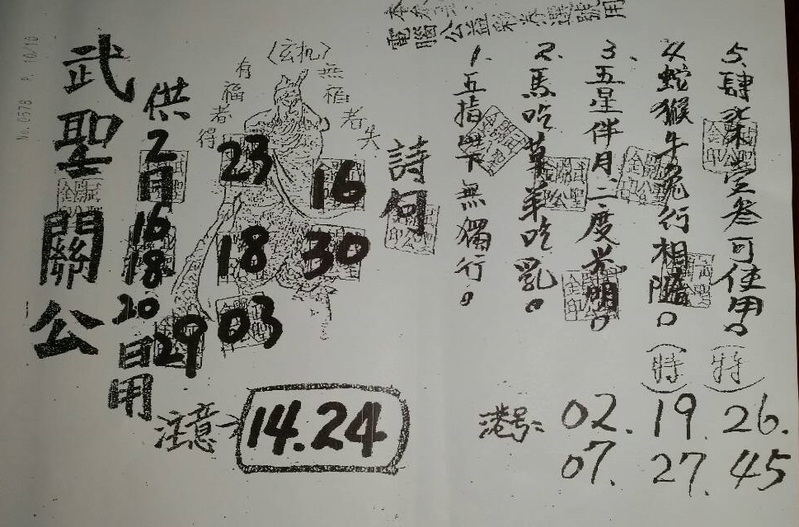 No. 0578 P. 10/10
電腦公益彩券選號用
武聖關公
供2月16 18 20日用
(玄机)
有福者得
無福者失
23
16
18
30
03
29
注意→14.24
詩句
1.五指無獨行。
2.馬吃草羊吃乳。
3.五星伴月二度光明。
4.蛇猴牛兔行相隨。(特)
5.肆柒壹叄可使用。(特)
港号: 02. 19. 26.
07. 27. 45